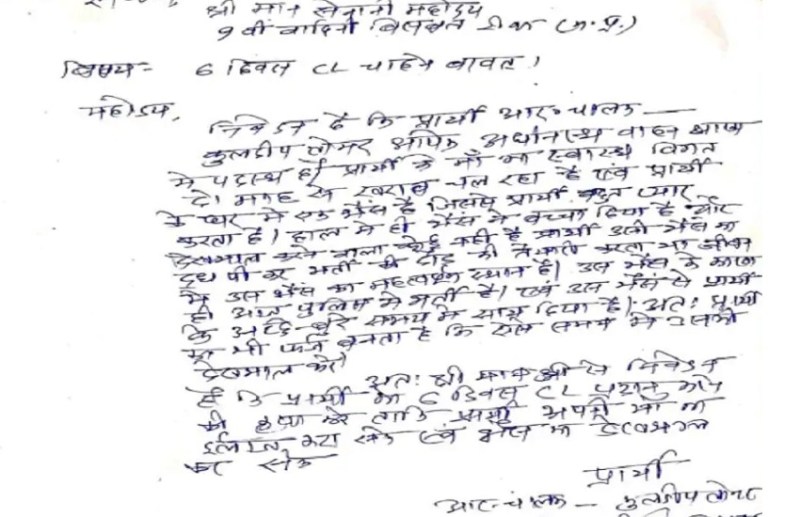 श्री मान सेनानी महोदय
9 वी वाहिनी विसबल रीवा (म.प्र.)
विषय - 6 दिवस CL चाहने बावत।
महोदय,
निवेदन है कि प्रार्थी आर० चालक —
कुलदीप तोमर आपके अधीनस्थ वाहन शाखा
मे पदस्थ है। प्रार्थी के माँ का स्वास्थ विगत
दो माह से खराब चल रहा है एवं प्रार्थी
के घर मे एक भैंस है जिससे प्रार्थी बहुत प्यार
करता है। हाल मे ही भैंस ने बच्चा दिया है और
देखभाल करने वाला कोई नही है प्रार्थी उसी भैंस का
दूध पी कर भर्ती की दौड़ की तैयारी करता था जीवन
मे उस भैंस का महत्वपूर्ण स्थान है। उस भैंस के कारण
ही आज पुलिस मे भर्ती है। एवं उस भैंस ने प्रार्थी
के अच्छे-बुरे समय मे साथ दिया है। अतः प्रार्थी
का भी फर्ज बनता है कि ऐसे समय मे उसकी
देखभाल करे।
अतः श्री मान जी से निवेदन
है कि प्रार्थी को 6 दिवस CL प्रदान करने
की कृपा करे ताकि प्रार्थी अपनी माँ का
ईलाज करा सके एवं भैंस की देखभाल
कर सके
प्रार्थी
आर० चालक - कुलदीप तोमर